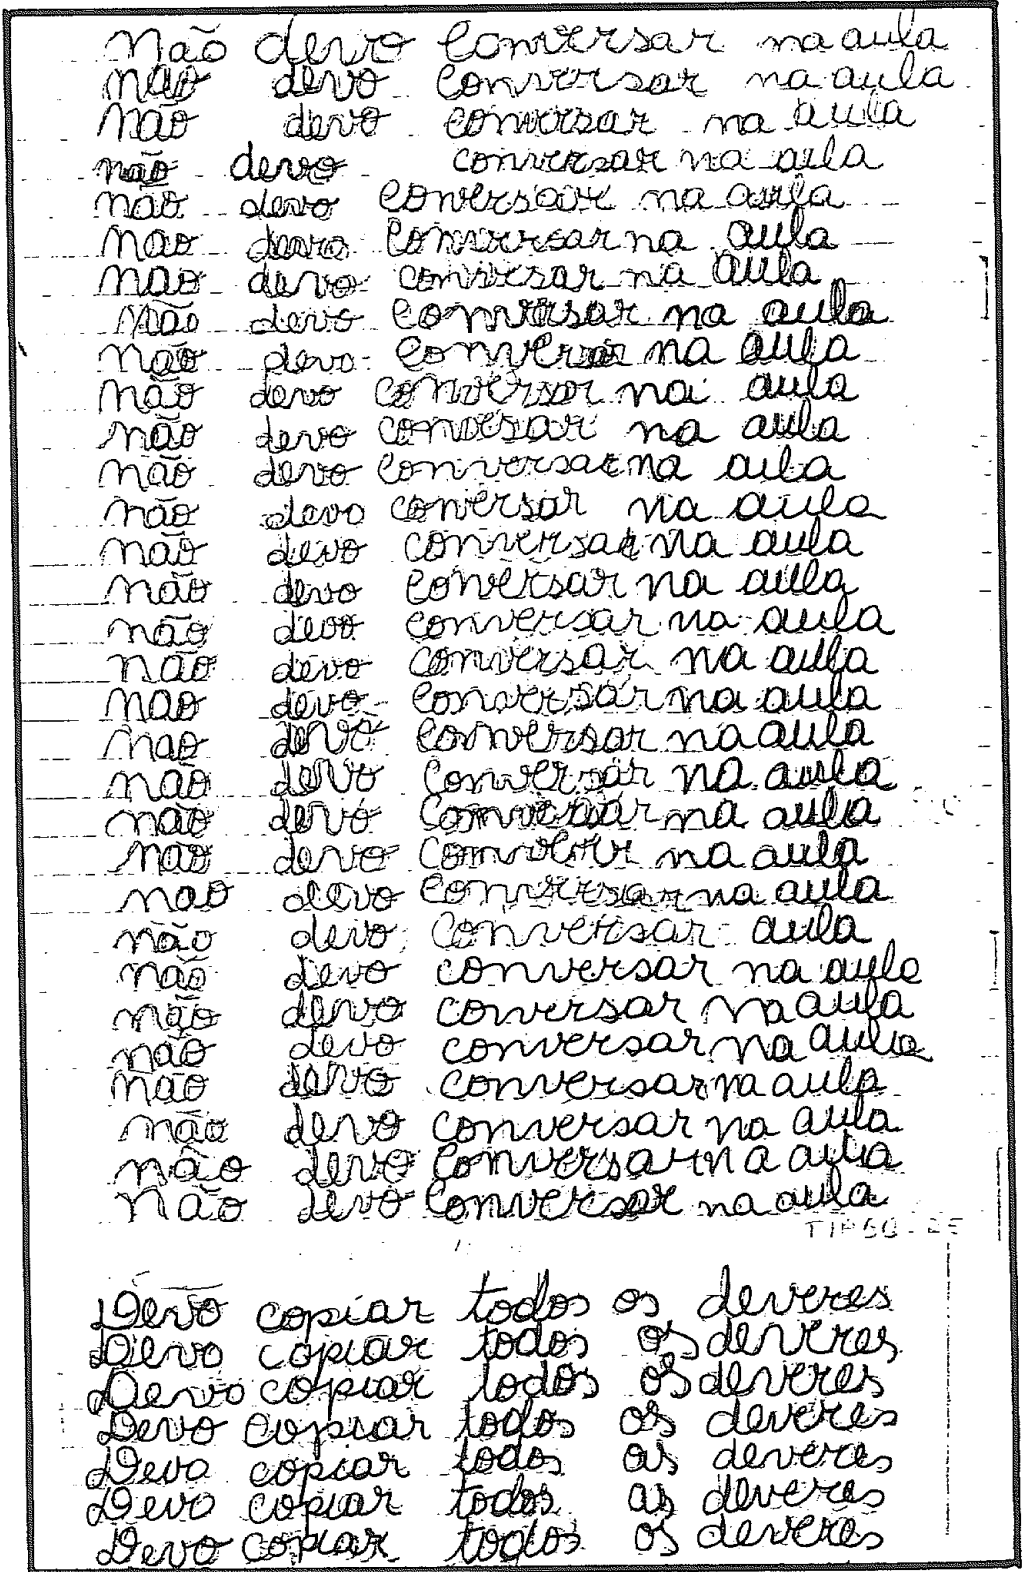 Não devo conversar na aula
não devo conversar na aula
não devo conversar na aula
não devo conversar na aula
não devo conversar na aula
nao devo conversar na aula
nao devo conversar na aula
não devo conversar na aula
não devo conversa na aula
não devo conversar na aula
não devo conversar na aula
não devo conversar na aula
não devo conversar na aula
não devo conversar na aula
não devo conversar na aula
não devo conversar na aula
não devo conversar na aula
nao devo conversar na aula
nao devo conversar na aula
não devo conversar na aula
não devo conversar na aula
não devo na aula
nao devo conversar na aula
não devo conversar aula
não devo conversar na aula
não devo conversar na aula
não devo conversar na aula
não devo conversar na aula
não devo conversar na aula
não devo conversar na aula
Não devo conversar na aula
Devo copiar todos os deveres
Devo copiar todos os deveres
Devo copiar todos os deveres
Devo copiar todos os deveres
Devo copiar todos os deveres
Devo copiar todos os deveres
Devo copiar todos os deveres